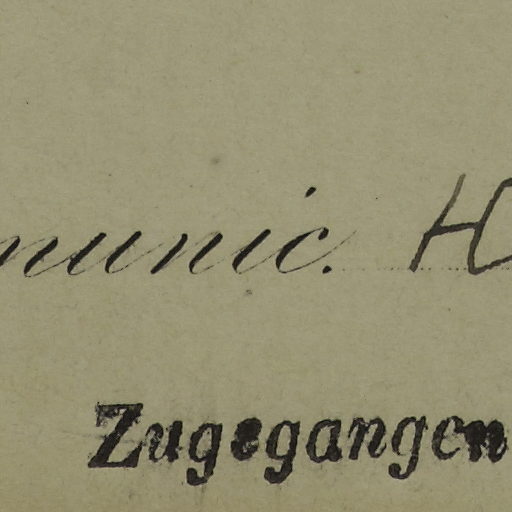 munic. H
Zugegangen